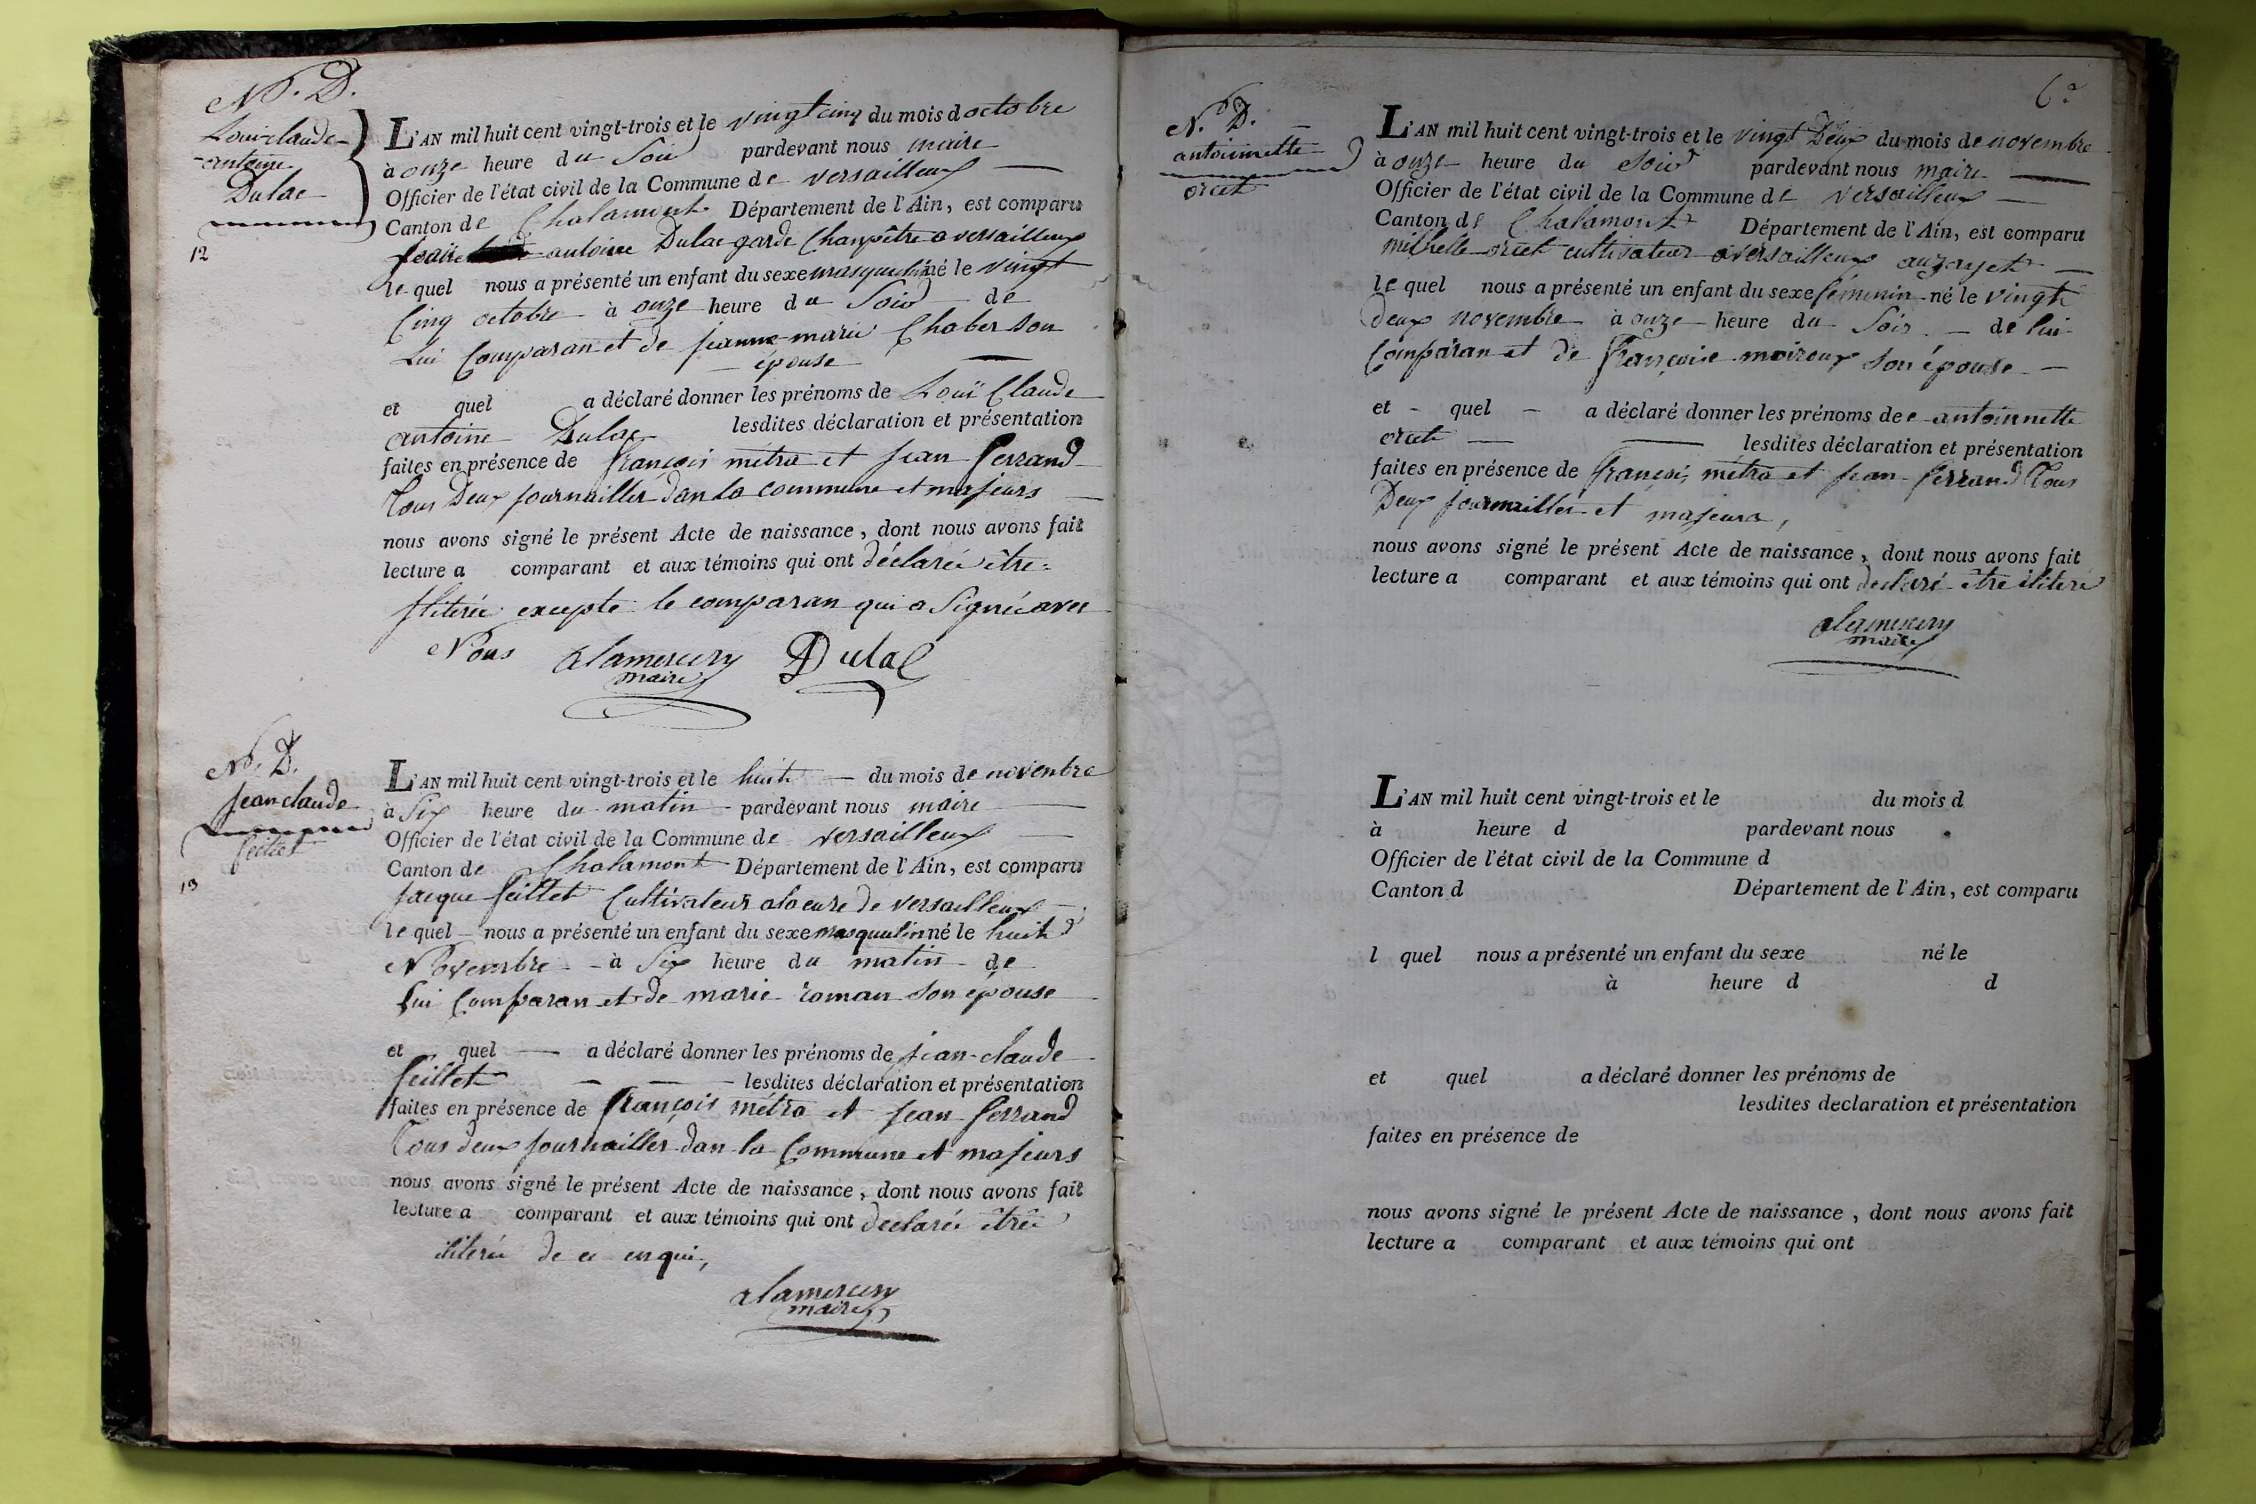 N. D.
Loui-claude-
-antoine
Dulac
12
L'AN mil huit cent vingt-trois et le vingt cinq du mois d octobre
à onze heure du Soir pardevant nous maire
Officier de l'état civil de la Commune de versailleux
Canton de Chalamont Département de l'Ain, est comparu
antoine Dulac garde Champêtre a versailleux
le quel nous a présenté un enfant du sexe masqulin né le vingt
Cinq octobre à onze heure du Soir de
Lui Comparan et de jeanne marie Chaber son
épouse
et quel a déclaré donner les prénoms de Louï Claude
antoine Dulac lesdites déclaration et présentation
faites en présence de françois métra et jean ferrand
Tous Deux journailler dan la commune et majeurs
nous avons signé le présent Acte de naissance, dont nous avons fait
lecture a comparant et aux témoins qui ont déclaréé être
iliteréé excepte le comparan qui a Signéé avec
Nous alamercery Dulac
maire
N. D.
jean claude
feillet
13
L'AN mil huit cent vingt-trois et le huit du mois de novenbre
à Six heure du matin pardevant nous maire
Officier de l'état civil de la Commune de versailleux
Canton de Chalamont Département de l'Ain, est comparu
jacque feillet Cultivateur a la cure de versailleux
le quel nous a présenté un enfant du sexe masqulin né le huit
Novembre à Six heure du matin de
Lui Comparan et de marie roman son épouse
et quel a déclaré donner les prénoms de jean-claude
feillet lesdites déclaration et présentation
faites en présence de françois métra et jean ferrand
Tous deux journailler dan la Commune et majeurs
nous avons signé le présent Acte de naissance, dont nous avons fait
lecture a comparant et aux témoins qui ont declaréé être
iliteréé de ce enqui,
alamercery
maire
6e
N. D.
antoinnette
orcet
L'AN mil huit cent vingt-trois et le vingt Deux du mois de novembre
à onze heure du Soir pardevant nous maire
Officier de l'état civil de la Commune de versailleux
Canton de Chalamont Département de l'Ain, est comparu
michelle orcet cultivateur a versailleux
le quel nous a présenté un enfant du sexe féminin né le vingt
deux novembre à onze heure du Soir de lui
Comparan et de françoise moiroux son épouse
et quel a déclaré donner les prénoms de antoinnette
orcet lesdites déclaration et présentation
faites en présence de françois métra et jean ferrand Tous
Deux journailler et majeurs,
nous avons signé le présent Acte de naissance, dont nous avons fait
lecture a comparant et aux témoins qui ont declaré être iliteré
alamercery
maire
L'AN mil huit cent vingt-trois et le du mois d
à heure d pardevant nous
Officier de l'état civil de la Commune d
Canton d Département de l'Ain, est comparu
l quel nous a présenté un enfant du sexe né le
à heure d d
et quel a déclaré donner les prénoms de
lesdites declaration et présentation
faites en présence de
nous avons signé le présent Acte de naissance, dont nous avons fait
lecture a comparant et aux témoins qui ont